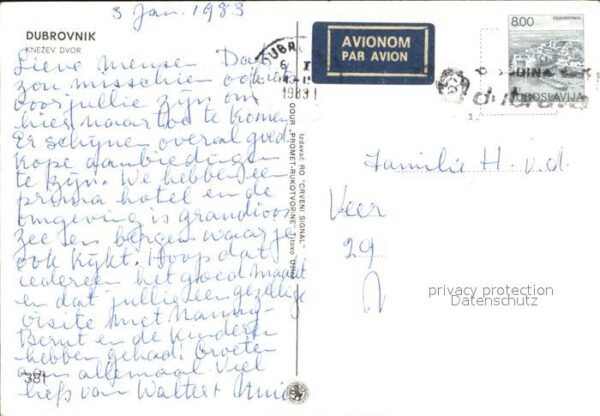 3 Jan. 1983
DUBROVNIK
KNEŽEV DVOR
Lieve mensen Dat
zou misschien ook iets
voor jullie zijn om
hier naar toe te komen
Er schijnen overal goed
kope aanbiedingen
te zijn. We hebben een
prima hotel en de
omgeving is grandioos
zee en bergen waar je
ook kijkt. Hoop dat
iedereen het goed maakt
en dat jullie een gezellige
visite met Nanny-
Bernt en de kinderen
hebben gehad. Groeten
aan allemaal. Veel
liefs van Walter +
381
Izdavač RO "CRVENI SIGNAL"
OOUR "PROMET-RUKOTVORINE"
AVIONOM
PAR AVION
DUBROV
6 I
1983
DUBROVNIK
8.00
JUGOSLAVIJA
Familie H. v.d.
Veer
29
privacy protection
Datenschutz